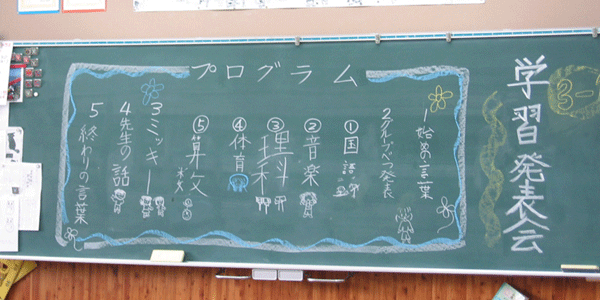 学習発表会
3-1
プログラム
1 始めの言葉
2 グループべつ発表
① 国語
② 音楽
③ 理科
④ 体育
⑤ 算数
3 ミッキー
4 先生の話
5 終わりの言葉